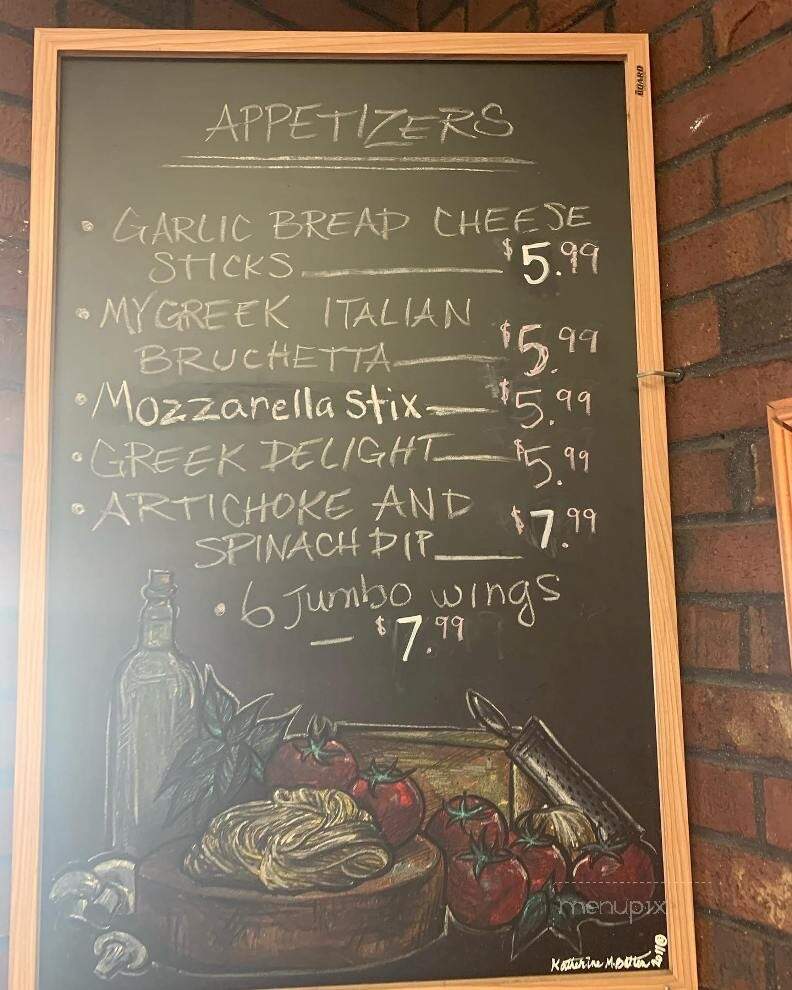 BOARD
APPETIZERS
• GARLIC BREAD CHEESE
STICKS $5.99
• MY GREEK ITALIAN
BRUCHETTA $5.99
• Mozzarella Stix $5.99
• GREEK DELIGHT $5.99
• ARTICHOKE AND
SPINACH DIP $7.99
• 6 Jumbo wings
— $7.99
menupix
Katherine M.